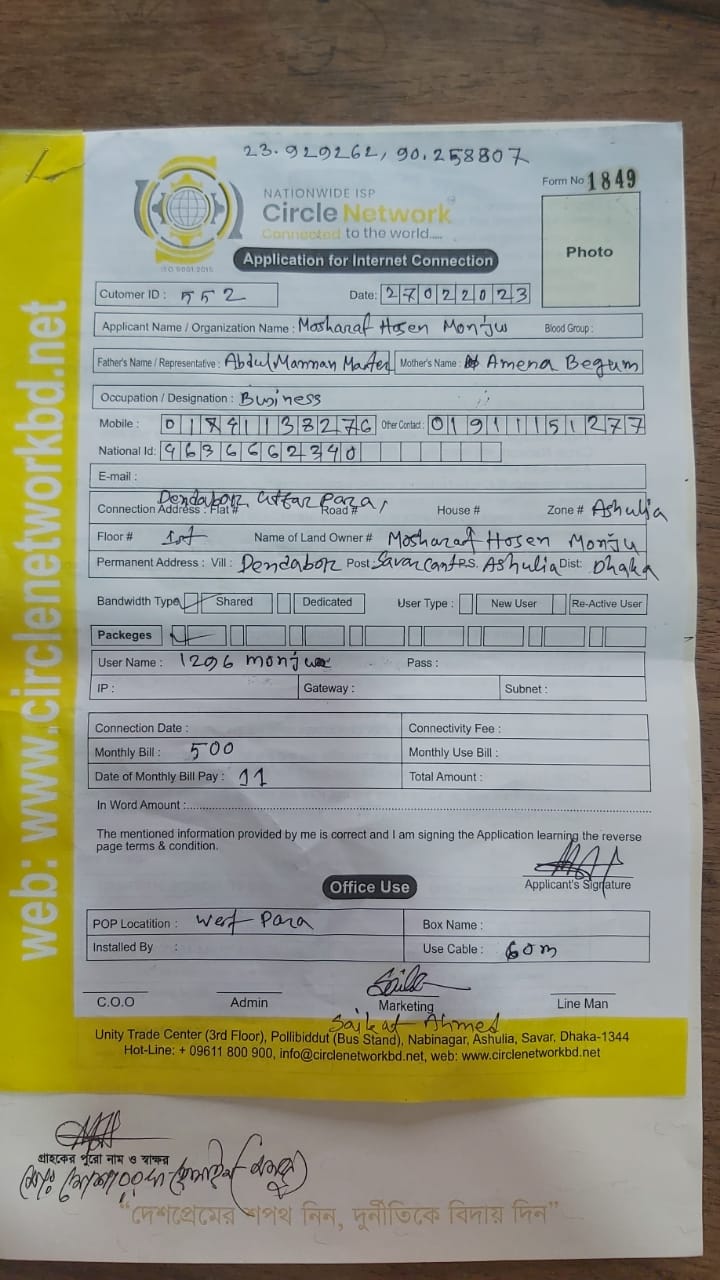 23.929262, 90.258807
Form No 1849
NATIONWIDE ISP
Circle Network
Connected to the world.....
ISO 9001:2015
Photo
Application for Internet Connection
Cutomer ID : 552 Date: 27022023
Applicant Name / Organization Name : Mosharaf Hosen Monju Blood Group :
Father's Name / Representative : Abdul Mannan Master Mother's Name : Amena Begum
Occupation / Designation : Business
Mobile : 01841138276 Other Contact : 01911151277
National Id: 4636662340
E-mail :
Connection Address : Flat # Dendabor Uttar Para, Road # House # Zone # Ashulia
Floor # 1st Name of Land Owner # Mosharaf Hosen Monju
Permanent Address : Vill : Dendabor Post : Savar Cant P.S. Ashulia Dist: Dhaka
Bandwidth Type Shared Dedicated User Type : New User Re-Active User
Packeges
User Name : 1296 monju Pass :
IP : Gateway : Subnet :
Connection Date : Connectivity Fee :
Monthly Bill : 500 Monthly Use Bill :
Date of Monthly Bill Pay : 11 Total Amount :
In Word Amount :
The mentioned information provided by me is correct and I am signing the Application learning the reverse
page terms & condition.
Applicant's Signature
Office Use
POP Locatition : West Para Box Name :
Installed By : Use Cable : 60m
C.O.O Admin Marketing Line Man
Saikat Ahmed
Unity Trade Center (3rd Floor), Pollibiddut (Bus Stand), Nabinagar, Ashulia, Savar, Dhaka-1344
Hot-Line: + 09611 800 900, info@circlenetworkbd.net, web: www.circlenetworkbd.net
web: www.circlenetworkbd.net
গ্রাহকের পুরো নাম ও স্বাক্ষর
"দেশপ্রেমের শপথ নিন, দুর্নীতিকে বিদায় দিন"